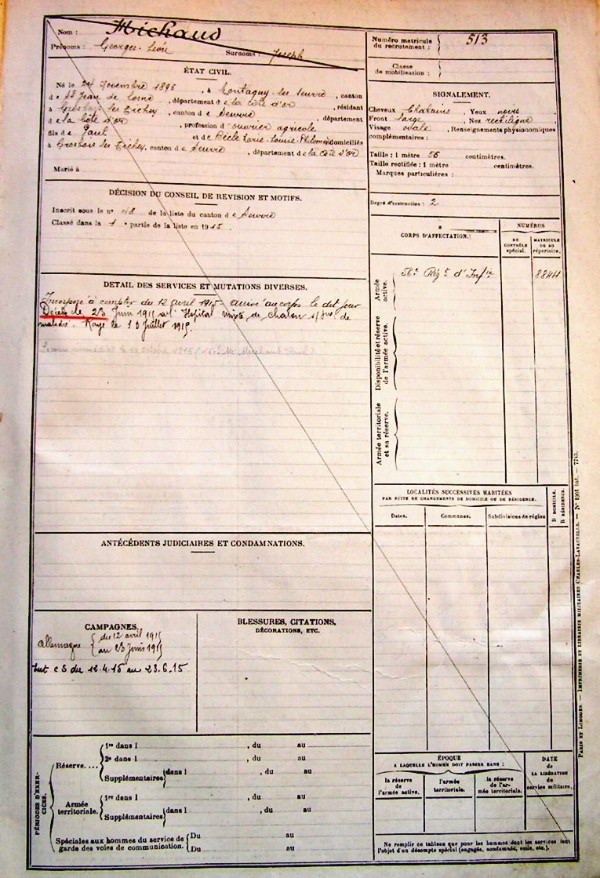 Nom : Michaud
Numéro matricule du recrutement : 513
Prénoms : Georges Surnoms : Joseph
Classe de mobilisation :
ÉTAT CIVIL.
Né le novembre 1896, à Montagny-les-Seurre, canton
de St Jean de Losne, département de la Côte d'Or, résidant
à Grosbois les Tichey, canton de Seurre, département
de la Côte d'Or, profession d'ouvrier agricole
fils de Paul et de Marie-Louise-Philomène domiciliés
à Grosbois les Tichey, canton de Seurre, département de la Côte d'Or
Marié à
SIGNALEMENT.
Cheveux Chatains Yeux noirs
Front large Nez rectiligne
Visage ovale, Renseignements physionomiques
complémentaires :
Taille : 1 mètre 56 centimètres.
Taille rectifiée : 1 mètre centimètres.
Marques particulières :
Degré d'instruction : 2
DÉCISION DU CONSEIL DE REVISION ET MOTIFS.
Inscrit sous le n° de la liste du canton de Seurre
Classé dans la 1e partie de la liste en 1915
CORPS D'AFFECTATION.
NUMÉROS
DU CONTRÔLE spécial.
MATRICULE OU DU répertoire.
Armée active.
56e Rég.t d'Inf.ie
8844
Disponibilité et réserve de l'armée active.
Armée territoriale et sa réserve.
DÉTAIL DES SERVICES ET MUTATIONS DIVERSES.
Incorporé à compter du 12 avril 1915 arrivé au corps le dit jour
Décédé le 23 Juin 1915 à l'Hôpital mixte de Chalon s/ de
maladie. Rayé le 13 Juillet 1915.
LOCALITÉS SUCCESSIVES HABITÉES
PAR SUITE DE CHANGEMENTS DE DOMICILE OU DE RÉSIDENCE.
Dates. Communes. Subdivisions de région D. DOMICILE. R. RÉSIDENCE.
ANTÉCÉDENTS JUDICIAIRES ET CONDAMNATIONS.
CAMPAGNES.
Allemagne { du 12 avril 1915
au 23 juin 1915
du 12.4.15 au 23.6.15
BLESSURES, CITATIONS,
DÉCORATIONS, ETC.
PÉRIODES D'EXERCICES.
Réserve....
1re dans l , du au
2e dans l , du au
Supplémentaires dans l , du au
, du au
Armée territoriale.
1re dans l , du au
Supplémentaires dans l , du au
, du au
Spéciales aux hommes du service de
garde des voies de communication.
Du au
Du au
ÉPOQUE
A LAQUELLE L'HOMME DOIT PASSER DANS :
la réserve de l'armée active.
l'armée territoriale.
la réserve de l'armée territoriale.
DATE
DE LA LIBÉRATION DU service militaire.
Ne remplir ce tableau que pour les hommes dont les services font
l'objet d'un décompte spécial (engagés, condamnés, omis, etc.)
PARIS ET LIMOGES. — IMPRIMERIE ET LIBRAIRIE MILITAIRES CHARLES-LAVAUZELLE.